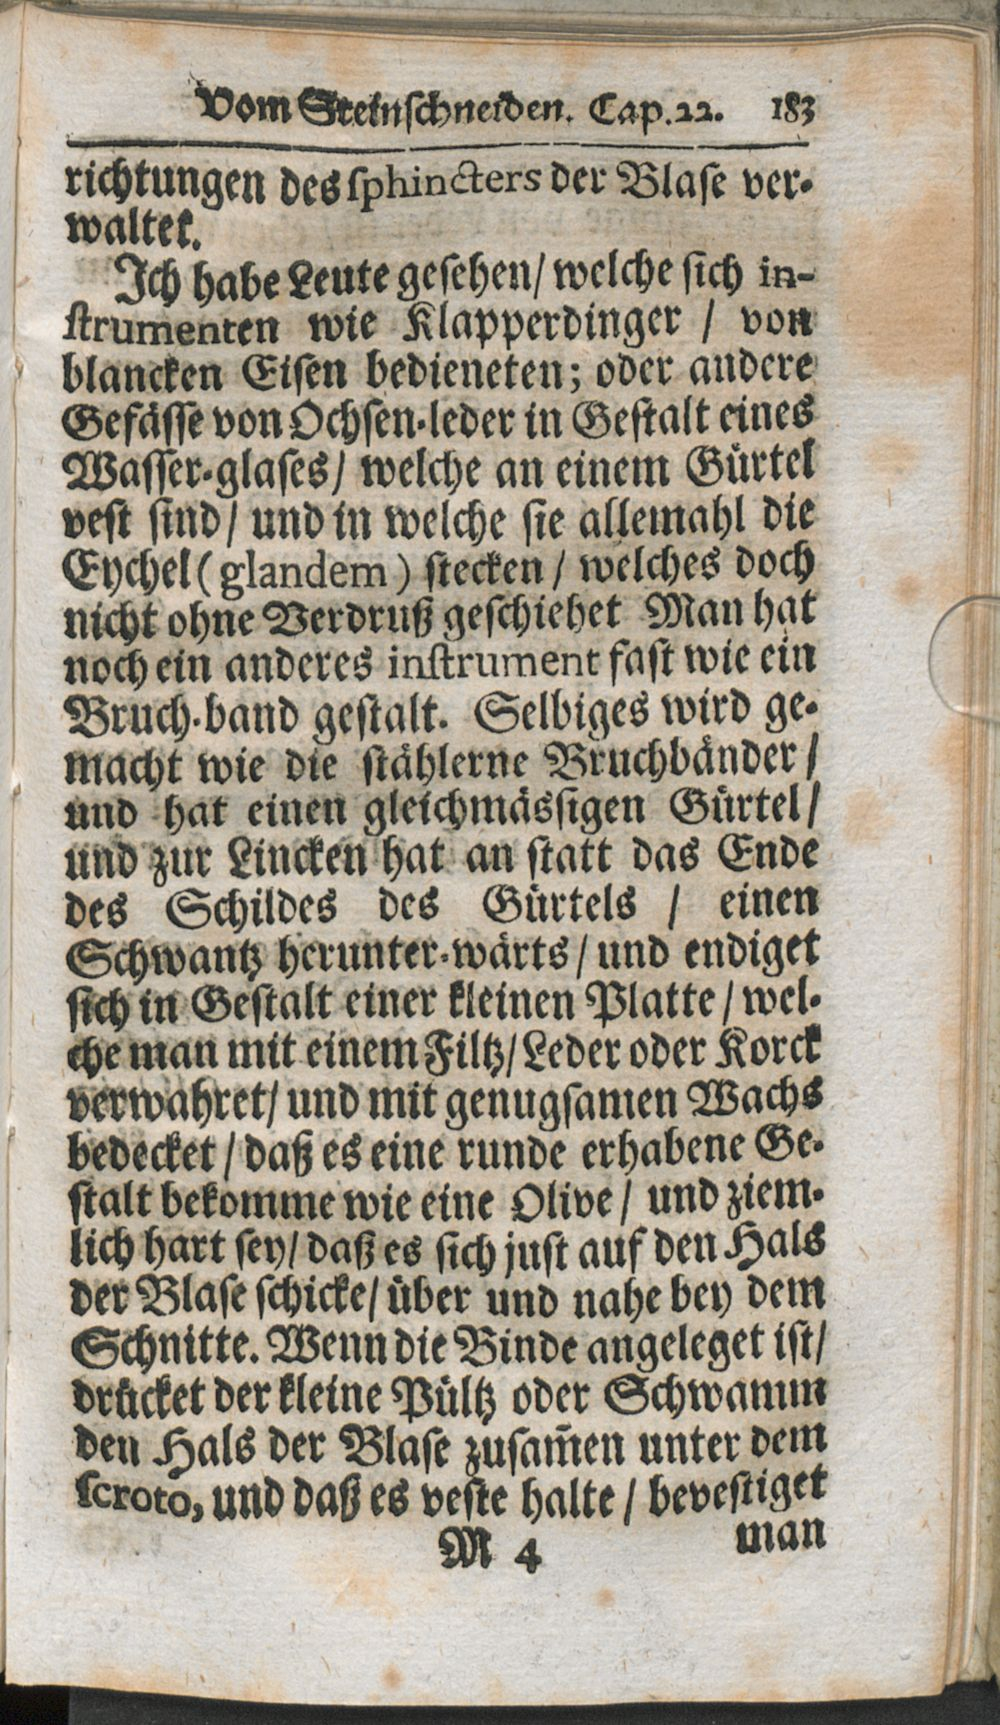 Vom Steinschneiden. Cap. 22. 183
richtungen des sphincters der Blase ver-
waltet.
Ich habe Leute gesehen/ welche sich in-
strumenten wie Klapperdinger / von
blancken Eisen bedieneten; oder andere
Gefässe von Ochsen-leder in Gestalt eines
Wasser-glases/ welche an einem Gürtel
vest sind/ und in welche sie allemahl die
Eychel (glandem) stecken / welches doch
nicht ohne Verdruß geschiehet Man hat
noch ein anderes instrument fast wie ein
Bruch-band gestalt. Selbiges wird ge-
macht wie die stählerne Bruchbänder /
und hat einen gleichmässigen Gürtel/
und zur Lincken hat an statt das Ende
des Schildes des Gürtels / einen
Schwantz herunter-wärts / und endiget
sich in Gestalt einer kleinen Platte / wel-
che man mit einem Filtz/ Leder oder Korck
verwahret/ und mit genugsamen Wachs
bedecket / daß es eine runde erhabene Ge-
stalt bekomme wie eine Olive / und ziem-
lich hart sey/ daß es sich just auf den Hals
der Blase schicke/ über und nahe bey dem
Schnitte. Wenn die Binde angeleget ist/
drücket der kleine Pültz oder Schwamm
den Hals der Blase zusam̄en unter dem
scroto, und daß es veste halte / bevestiget
M 4 man